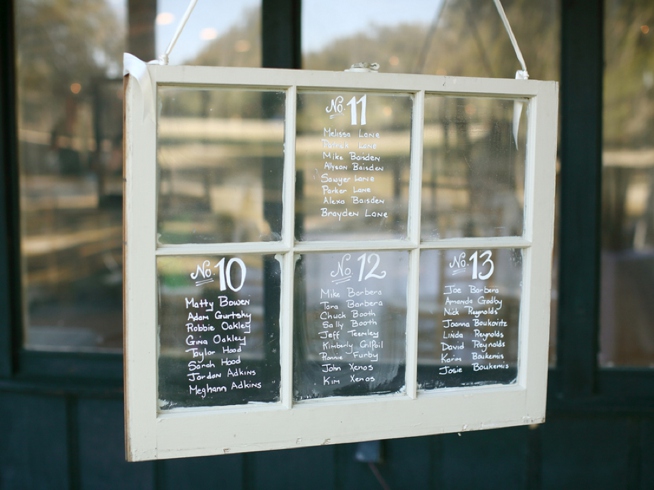 No. 11
Melissa Lane
Patrick Lane
Mike Baisden
Allyson Baisden
Sawyer Lane
Parker Lane
Alexa Baisden
Brayden Lane
No. 10
Matty Bowen
Adam Gurtsky
Robbie Oakley
Gina Oakley
Taylor Hood
Sarah Hood
Jordan Adkins
Meghann Adkins
No. 12
Mike Barbera
Tara Barbera
Chuck Booth
Sally Booth
Jeff Teasley
Kimberly
Ronnie Furby
John Xenos
Kim Xenos
No. 13
Joe Barbera
Amanda Godby
Nick Reynolds
Joanna
Linda Reynolds
David Reynolds
Karim Boukemis
Josie Boukemis